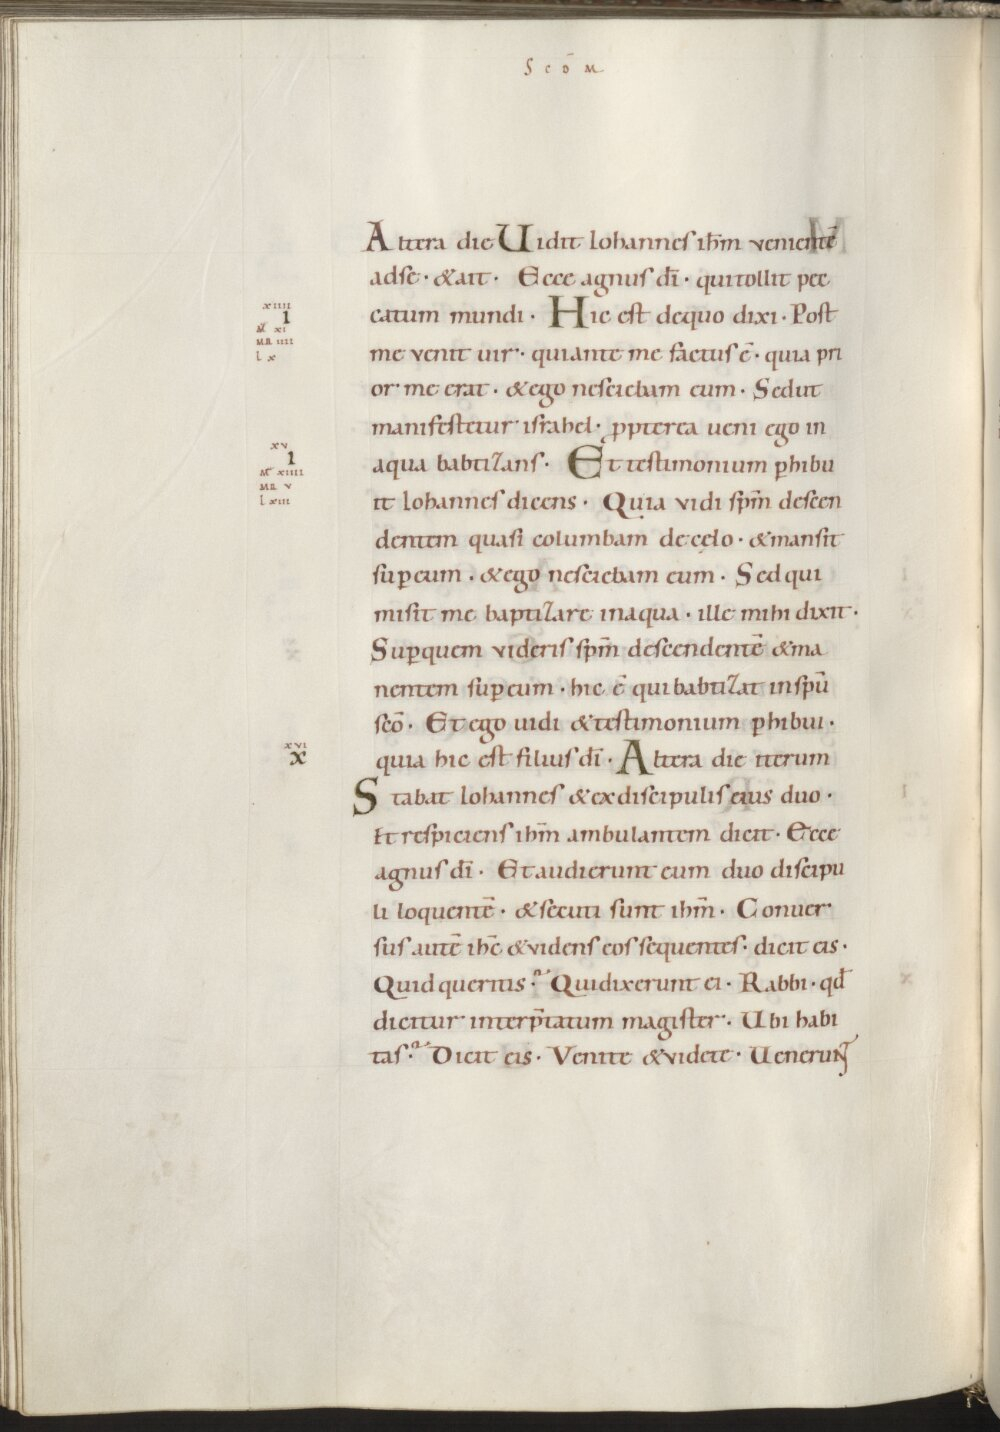 Scdm̄
Altera die Uidit Iohannes ihm̄ venientē
adse · &ait · Ecce agnus dī · quitollit pec
catum mundi · Hic est dequo dixi · Post
me venit uir · quiante me factus ē · quia pri
or me erat · &ego nesciebam eum · Sedut
manifestetur israhel · ꝓpterea ueni ego in
aqua babtizans · Et testimonium ꝑhibu
it Iohannes dicens · Quia vidi spm̄ descen
dentem quasi columbam decęlo · &mansit
suꝑeum · &ego nesciebam eum · Sedqui
misit me baptizare inaqua · ille mihi dixit ·
Suꝑquem videris spm̄ descendentē &ma
nentem suꝑeum · hic ē quibabtizat inspū
scō · Et ego uidi &testimonium ꝑhibui ·
quia hic est filius dī · Altera die iterum
Stabat Iohannes &exdiscipulis eius duo ·
Et respiciens ihm̄ ambulantem dicit · Ecce
agnus dī · Et audierunt eum duo discipu
li loquentē · &secuti sunt ihm̄ · Conuer
sus autē ihc̄ &videns eos sequentes · dicit eis ·
Quid queritis · Quidixerunt ei · Rabbi · qđ
dicitur interp̄tatum magister · Ubi habi
tas · Dicit eis · Venite &videte · Uenerunt
xiiii
I
M̄ xi
MR iiii
L x
xv
I
M̄ xiiii
MR v
L xiii
xvi
x